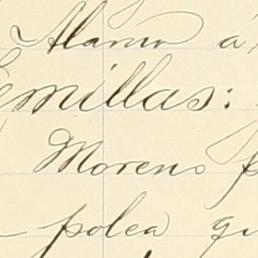 Alamo á
emillas:
Moreno p
polea qu